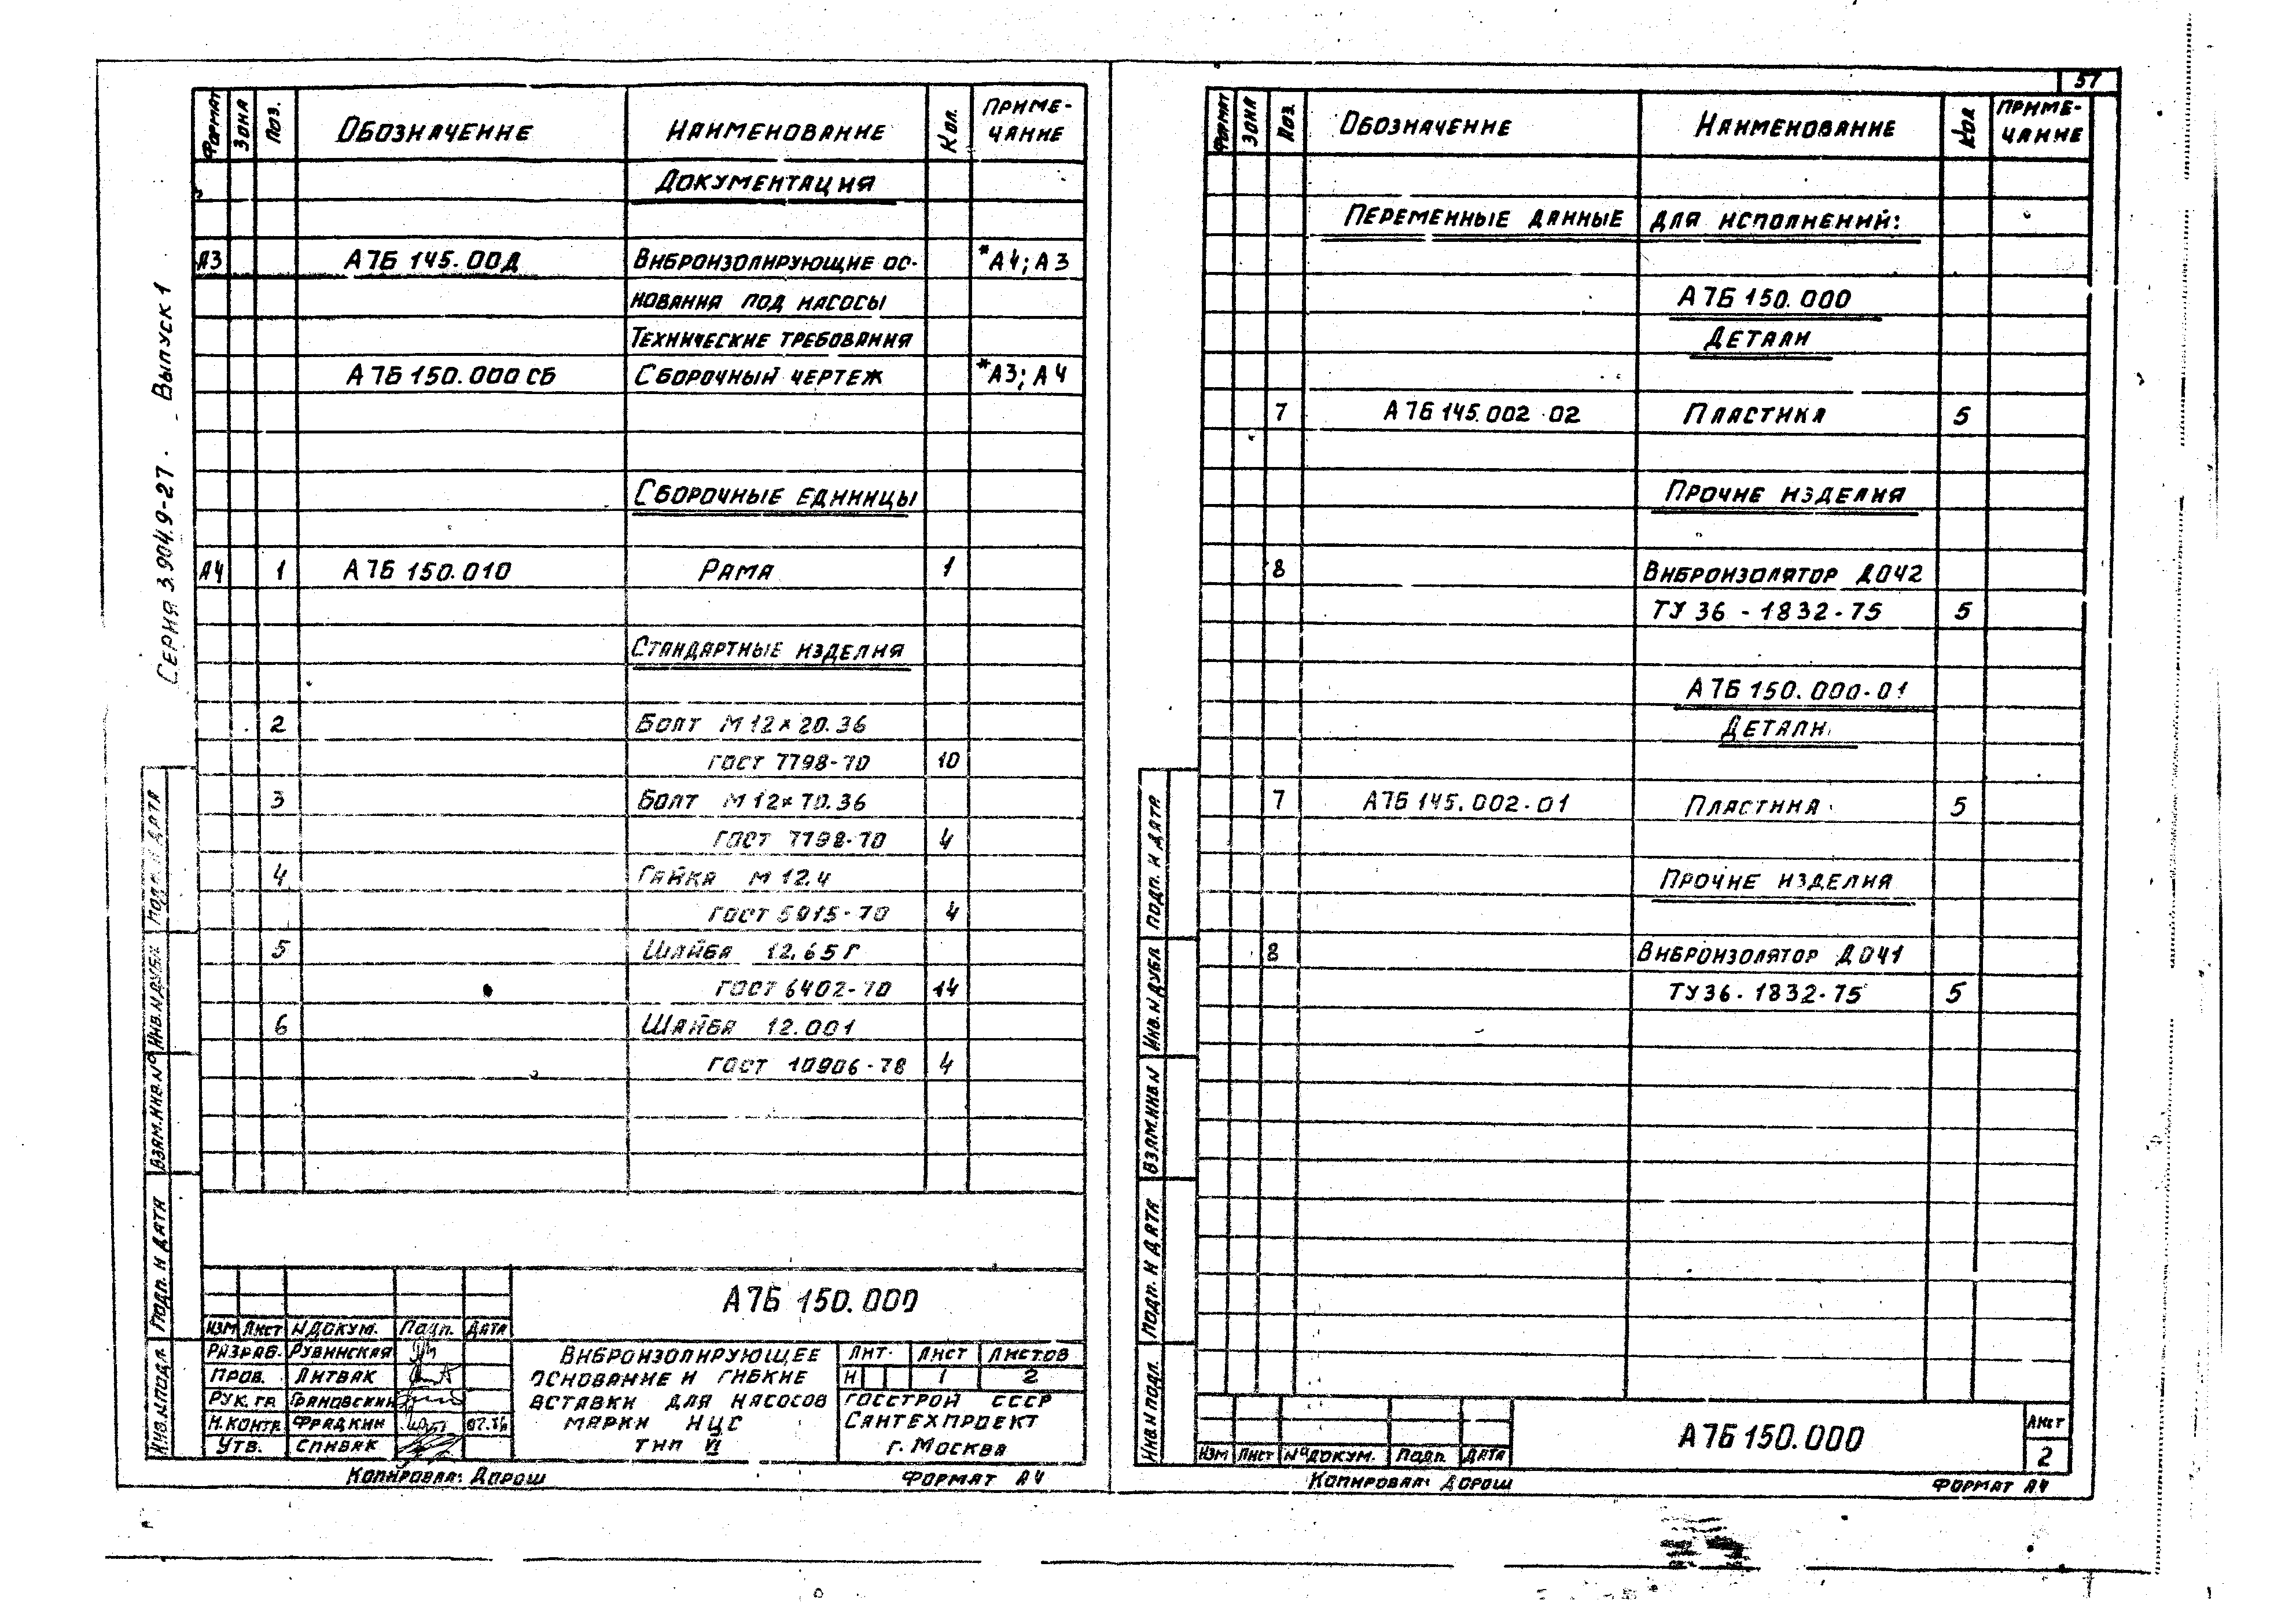 Серия 3.904.9-27. Выпуск 1
Формат Зона Поз. Обозначение Наименование Кол. Приме-
чание
Документация
А3 А7Б 145.00Д Виброизолирующие ос- *А4; А3
нования под насосы
Технические требования
А7Б 150.000 СБ Сборочный чертеж *А3; А4
Сборочные единицы
А4 1 А7Б 150.010 Рама 1
Стандартные изделия
2 Болт М12×20.36
ГОСТ 7798-70 10
3 Болт М12×70.36
ГОСТ 7798-70 4
4 Гайка М 12.4
ГОСТ 5915-70 4
5 Шайба 12.65Г
ГОСТ 6402-70 14
6 Шайба 12.001
ГОСТ 10906-78 4
Подп. и дата
Инв.N дубл
Взам.инв.N°
Подп. и дата
Инв.N подл.
А7Б 150.000
Изм Лист N докум. Подп. Дата
Разраб. Рувинская
Пров. Литвак
Рук. гр. Грановский
Н.контр. Фрадкин
Утв. Спивак
Виброизолирующее
основание и гибкие
вставки для насосов
марки НЦС
тип VI
Лит. Лист Листов
И 1 2
Госстрой СССР
Сантехпроект
г. Москва
Копировал: Дорош Формат А4
57
Формат Зона Поз. Обозначение Наименование Кол Приме-
чание
Переменные данные для исполнений:
А7Б 150.000
Детали
7 А7Б 145.002-02 Пластика 5
Прочие изделия
8 Виброизолятор Д042
ТУ 36-1832-75 5
А7Б 150.000-01
Детали
7 А7Б 145.002-01 Пластина 5
Прочие изделия
8 Виброизолятор Д041
ТУ36-1832-75 5
Подп. и дата
Инв.N дубл
Взам.инв N
Подп. и дата
Инв.N подл.
Изм Лист N°докум. Подп. Дата
А7Б 150.000
Лист
2
Копировал: Дорош Формат А4